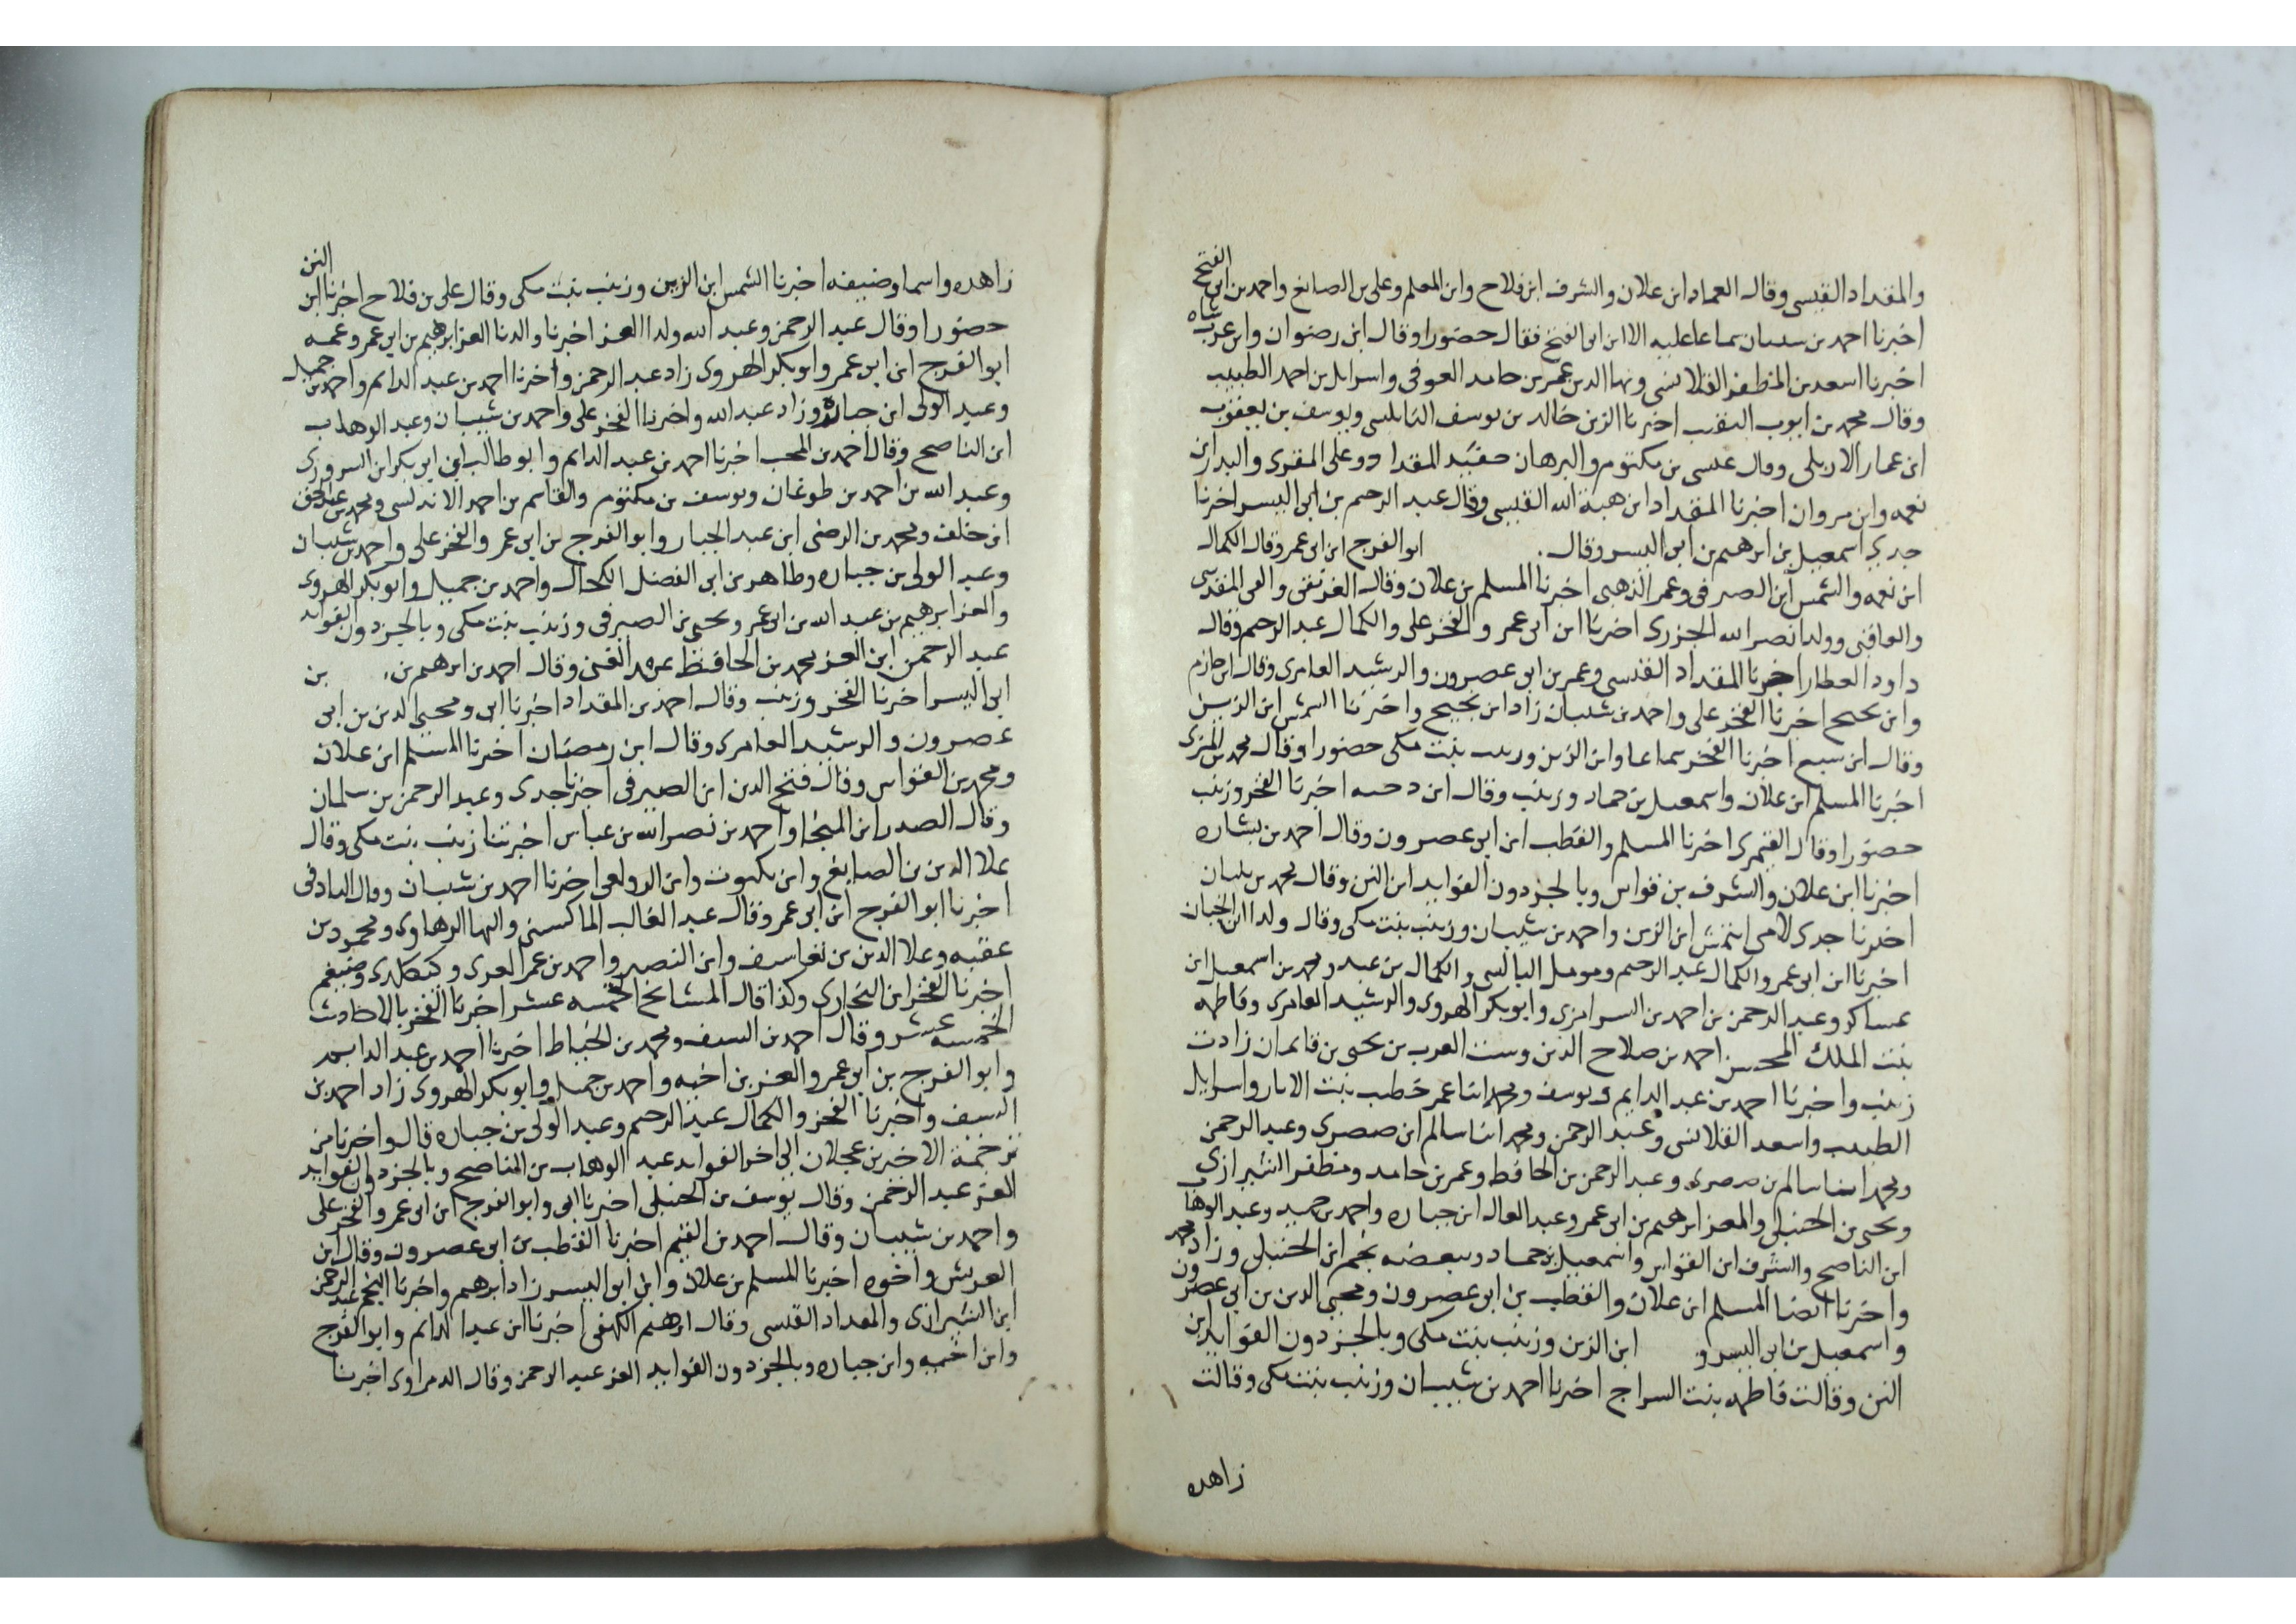 والمقداد القيسى وقال العماد ابن علان والشرف ابن فلاح وابن المعلم وعلى بن الصايغ واحمد بن ابى الفتح
اخبرنا احمد بن سيبان سماعا عليه الا ابن ابى الفتح فقال حضورا وقال ابن رضوان وابن عربشاه
اخبرنا اسعد بن المظفر القلانسى وبها الدين عمر بن حامد العوفى واسرايل بن احمد الطبيب
وقال محمد بن ايوب النقيب اخبرنا الزين خالد بن يوسف النابلسى ويوسف بن يعقوب
ابن عمار الاربلى وقال عيسى بن مكتوم والبرهان حفيد المقداد وعلى المقرى والبدر ابن
نعمه وابن مروان اخبرنا المقداد ابن هبة الله القيسى وقال عبد الرحيم بن ابى اليسر اخبرنا
جدى اسمعيل بن ابرهيم بن ابى اليسر وقال ابو الفرج ابن ابى عمر وقال الكمال
ابن نعمه والشمس ابن الصيرفى وعمر الذهبى اخبرنا المسلم بن علان وقال العز والمقدسى
وولدا نصر الله الجزرى اخبرنا ابن ابى عمر والفخر على والكمال عبد الرحيم وقال
داود العطار اخبرنا المقداد القيسى وعمر بن ابى عصرون والرشيد العامرى وقال ابن حازم
وابن نجيح اخبرنا الفخر على واحمد بن شيبان زاد ابن نجيح واخبرنا الشمس ابن الزين
وقال ابن سبع اخبرنا الفخر سماعا وابن الزين وزينب بنت مكى حضورا وقال محمد بن المزى
اخبرنا المسلم ابن علان واسمعيل بن حماد وزينب وقال ابن اخبرنا الفخر وزينب
حضورا وقال القيمرى اخبرنا المسلم والقطب ابن ابى عصرون وقال احمد بن بشاره
اخبرنا ابن علان والشرف بن قواس وبالجزء دون الفوايد ابن النن وقال محمد بن بلبان
اخبرنا جدى لامى ايتمش ابن الزين واحمد بن شيبان وزينب بنت مكى وقال ولدا ابن الخباز
اخبرنا ابن ابى عمر والكمال عبد الرحيم ومومل البالسى والكمال بن عبد ومحمد بن اسمعيل ابن
عساكر وعبد الرحمن بن احمد بن السرامزى وابو بكر الهروى والرشيد العامرى وفاطمه
بنت الملك المحسن احمد بن صلاح الدين وست العرب بن يحيى بن قايماز زادت
زينب واخبرنا احمد بن عبد الدايم ويوسف ومحمد ابنا عمر خطيب بيت الابار واسرايل
الطبيب واسعد القلانسى وعبد الرحمن ومحمد ابنا سالم ابن صصرى وعبد الرحمن
ومحمد ابنا سالم بن صصرى وعبد الرحمن بن الحافظ وعمر بن حامد ومظفر الشيرازى
ويحيى بن الحنبلى والعز ابرهيم بن ابى عمر وعبد العال ابن جباره واحمد بن جميد وعبد الوهاب
ابن الناصح والشرف ابن القواس واسمعيل بن حماد وببعضه نجم ابن الحنبلى وزاد محمد
واخبرنا ايضا المسلم ابن علان والقطب بن ابى عصرون ومحيى الدين بن ابى عصرون
واسمعيل بن ابى اليسر و ابن الزين وزينب بنت مكى وبالجزء دون الفوايد ابن
النن وقالت فاطمه بنت السراج اخبرنا احمد بن شيبان وزينب بنت مكى وقالت
زاهده
زاهده واسما وضيفه اخبرنا الشمس ابن الزين وزينب بنت مكى وقال على بن فلاح اخبرنا ابن النن
حضورا وقال عبد الرحمن وعبد الله ولدا العز اخبرنا والدنا العز ابرهيم بن ابى عمر وعمه
ابو الفرج ابن ابى عمر وابو بكر الهروى زاد عبد الرحمن واخبرنا احمد بن عبد الدايم واحمد بن جميل
وعبد الولى ابن جباره وزاد عبد الله واخبرنا الفخر على واحمد بن شيبان وعبد الوهاب
ابن الناصح وقال احمد بن المحب اخبرنا احمد بن عبد الدايم وابو طالب ابن ابى بكر ابن السرورى
وعبد الله بن احمد بن طوغان ويوسف بن مكتوم والقاسم بن احمد الاندلسى ومحمد بن عبد الحق
ابن خلف ومحمد بن الرضى ابن عبد الجبار وابو الفرج بن ابى عمر والفخر على واحمد بن شيبان
وعبد الولى بن جباره وطاهر بن ابى الفضل الكحال واحمد بن جميل وابو بكر الهروى
والعز ابرهيم بن عبد الله بن ابى عمر ويحيى بن الصيرفى وزينب بنت مكى وبالجزء دون الفوايد
عبد الرحمن ابن العز محمد بن الحافظ عبد الغنى وقال احمد بن ابرهيم بن بن
ابى اليسر اخبرنا الفخر وزينب وقال احمد بن المقداد اخبرنا ابى ومحيى الدين بن ابى
عصرون والرشيد العامرى وقال ابن رمضان اخبرنا المسلم ابن علان
ومحمد بن القواس وقال فتح الدين ابن الصيرفى اخبرنا جدى وعبد الرحمن بن سلمان
وقال الصدر ابن المنجا واحمد بن نصر الله بن عباس اخبرتنا زينب بنت مكى وقال
علا الدين بن الصايغ وابن بكتوت وابن الدولعى اخبرنا احمد بن شيبان وقال
اخبرنا ابو الفرج ابن ابى عمر وقال عبد الغالب الماكسينى والبها الرهاوى ومحمود بن
عقبه وعلا الدين بن وابن النصير واحمد بن عمر وكيكلدى وضيغم
اخبرنا الفخر ابن البخارى وكذا قال المشايخ الخمسه عشر اخبرنا الفخر بالاحاديث
الخمسه عشر وقال احمد بن السيف ومحمد بن الخياط اخبرنا احمد بن عبد الدايم
وابو الفرج بن ابى عمر والعز بن اخيه واحمد بن جميل وابو بكر الهروى زاد احمد بن
السيف واخبرنا الفخر والكمال عبد الرحيم وعبد الولى بن جباره قال واخبرنا من
ترجمة الاخير بن عجلان الى اخر الفوايد عبد الوهاب بن الناصح وبالجزء دون الفوايد
العز عبد الرحمن وقال يوسف بن الحنبلى اخبرنا ابى وابو الفرج ابن ابى عمر والفخر على
واحمد بن شيبان وقال احمد بن القيم اخبرنا القطب بن ابى عصرون وقال ابن
العريش واخوه اخبرنا المسلم بن علان وابن ابو اليسر زاد ابرهيم واخبرنا النجم عبد الرحمن
ابن الشيرازى والمقداد القيسى وقال ابرهيم الكهفى اخبرنا ابن عبد الدايم وابو الفرج
وابن اخيه وابن جباره وبالجزء دون الفوايد العز عبد الرحمن وقال الدمراوى اخبرنا